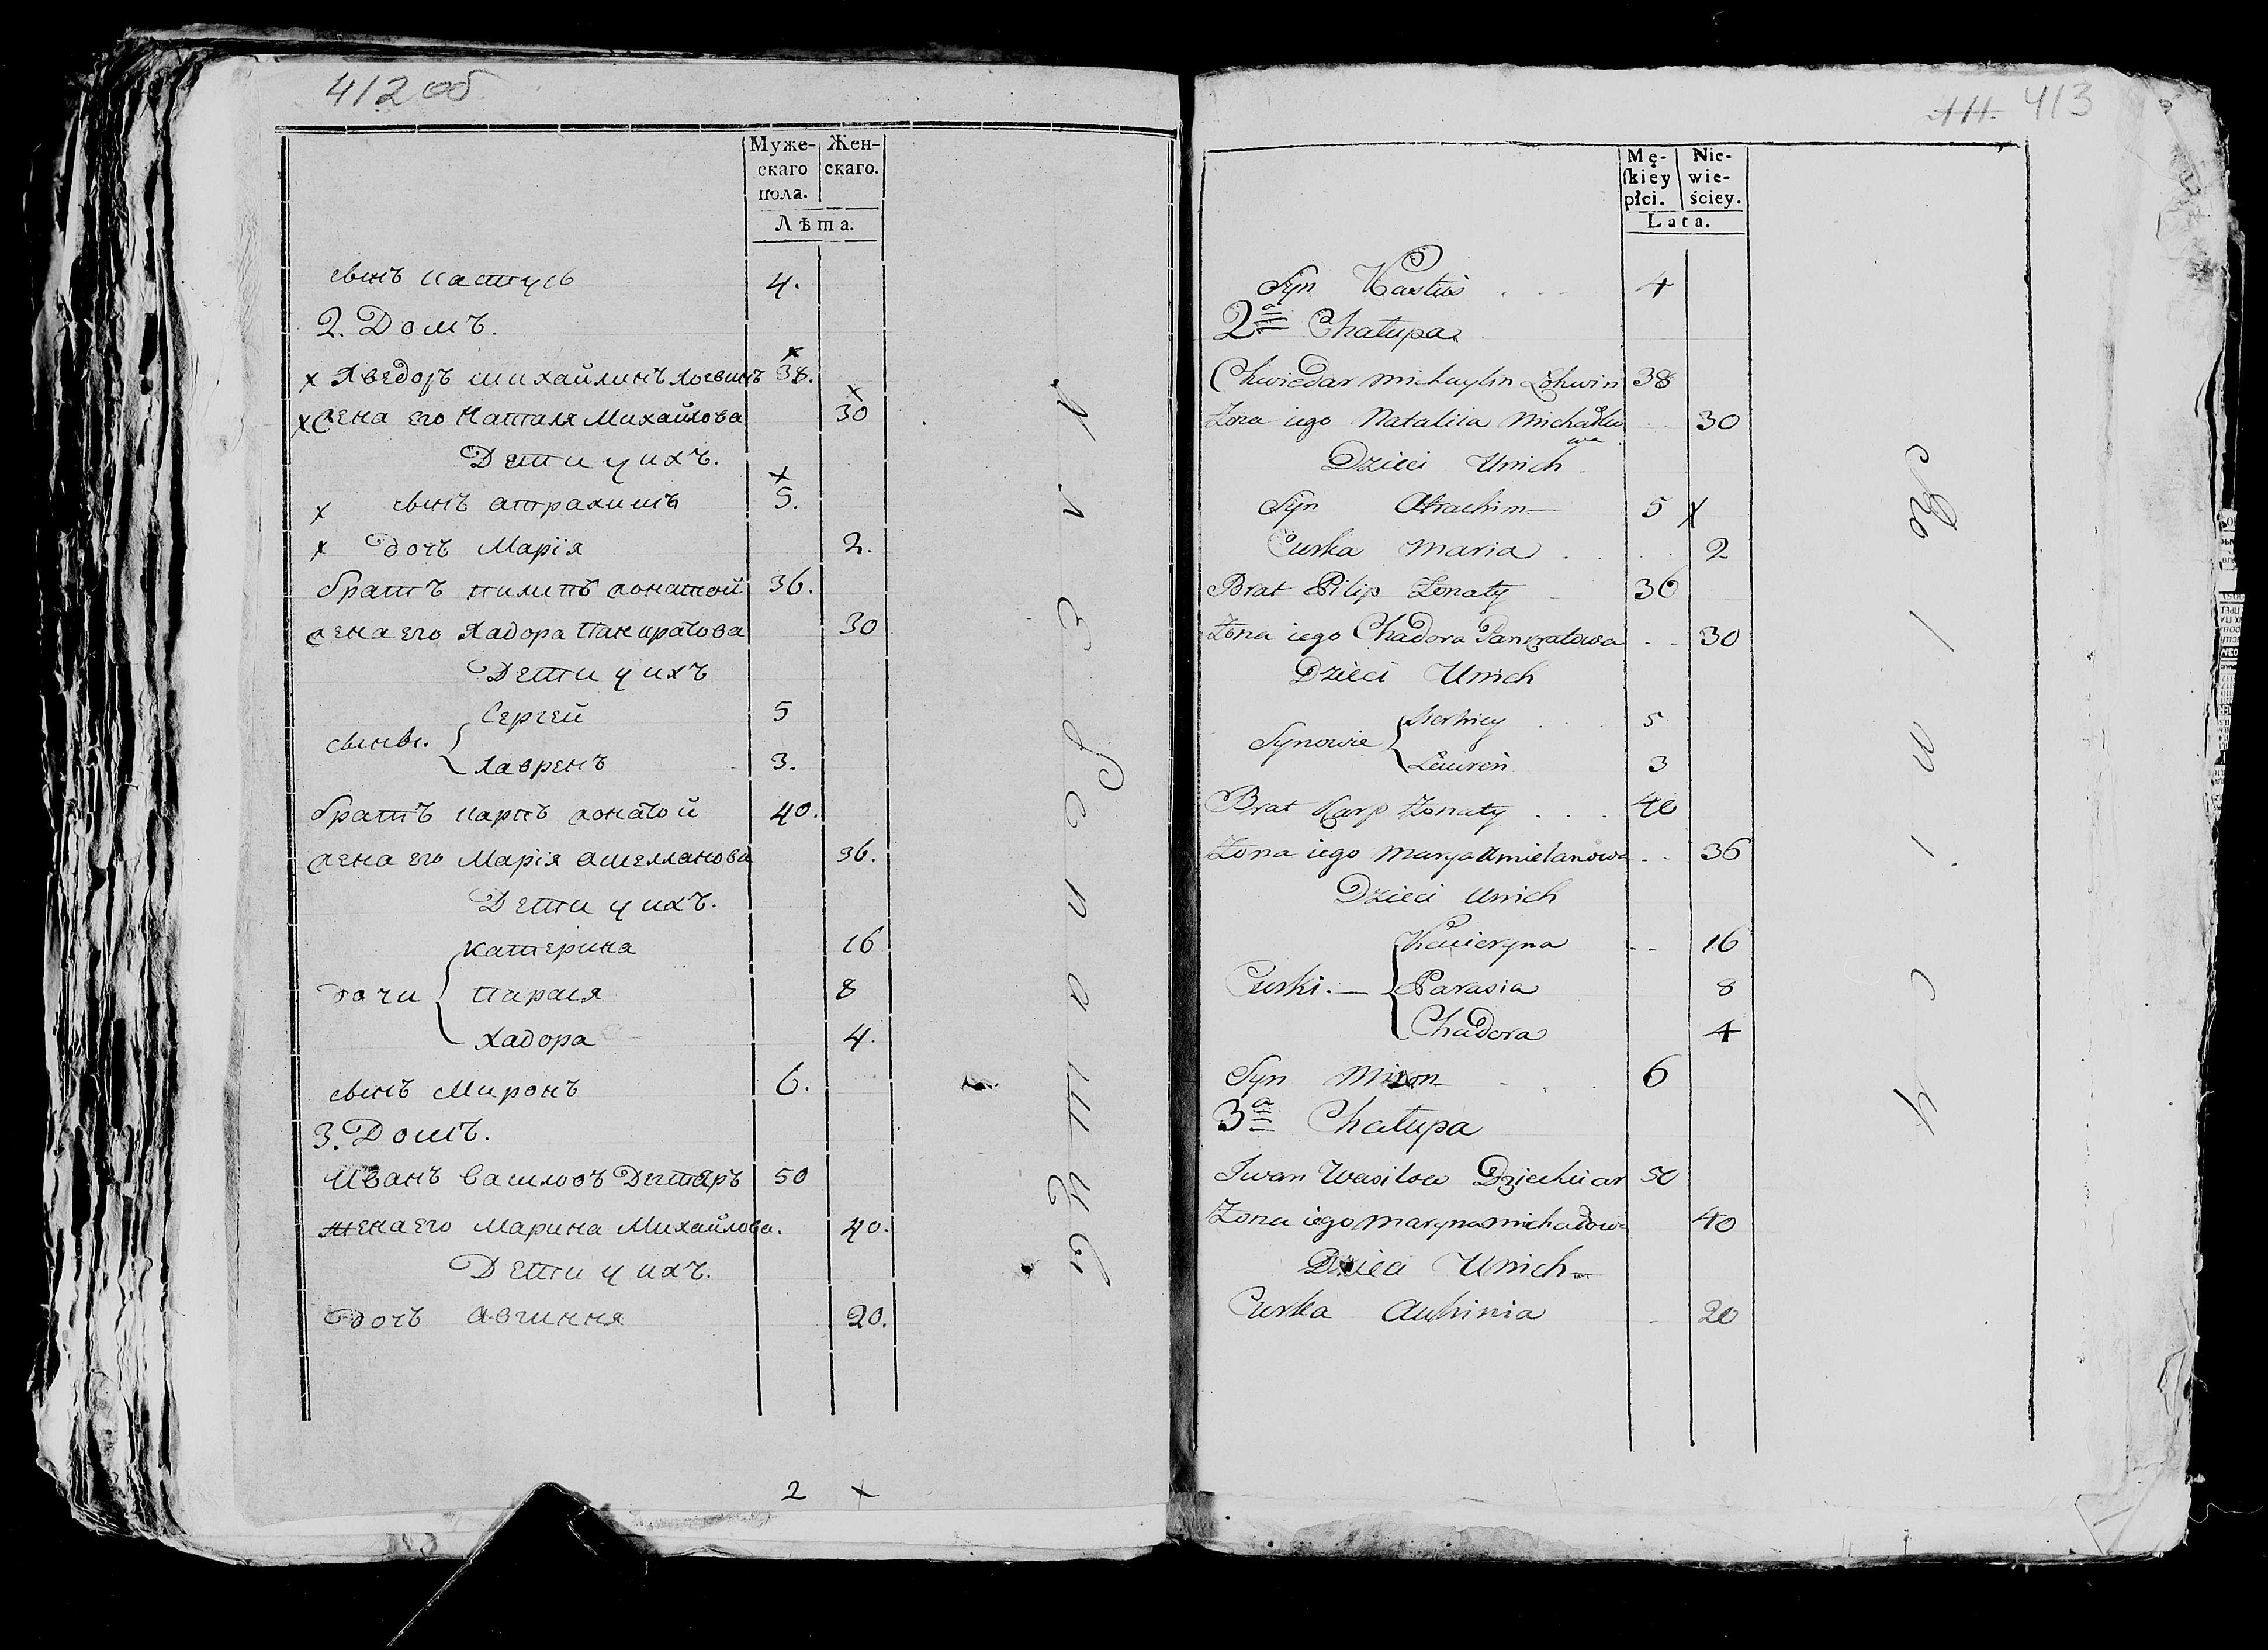 412 об
Муже- Жен-
скаго скаго.
пола.
Лѣта.
сынъ кастусь 4.
2. Домъ.
х Хведоръ михайлинъ логвинъ 38.
х жена его Наталя Михайлова 30
Дети у ихъ.
х сынъ атрахимъ 5.
х дочь Марія 2.
братъ пилипъ жонатой 36.
жена его Хадора Панкратова 30
Дети у ихъ
Сергей 5
сыны.
лавренъ 3.
братъ карпъ жонатой 40.
жена его Марія амелянова 36.
Дети у ихъ.
катерина 16
дочи парася 8
Хадора 4.
сынъ Миронъ 6.
3. Домъ.
Иванъ василовъ Дегтяръ 50
жена его марина Михайлова. 40.
Дети у ихъ.
дочь авгиння 20.
2 х
413
Mę- Nie-
skiey wie-
płci. ściey.
Lata.
Syn Kastuś 4
2a Chałupa
Chwiedar michaylin Łohwin 38
Żona iego Nataliia michayło
wa 30
Dzieci Unich
Syn Atrachim 5 x
Curka maria 2
Brat Pilip Żonaty 36
Żona iego Chadora Pankratowa 30
Dzieci Unich
Serhiey 5
Synowie
Ławren 3
Brat Karp Żonaty 40
Żona iego marya Amielanowa 36
Dzieci Unich
Kacieryna 16
Curki. Parasia 8
Chadora 4
Syn Miron 6
3a Chałupa
Iwan Wasilow Dziechciar 50
Żona iego maryna michaylowa 40
Dzieci Unich
Curka Auhinia 20